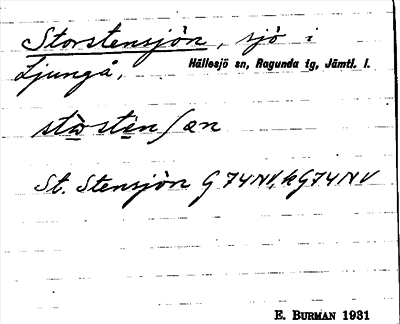 Storstensjön, sjö i
Ljungå, Hällesjö sn, Ragunda tg, Jämtl. l.
stòrstén∫ɶn
St. Stensjön G74NV, kG74NV
E. BURMAN 1931